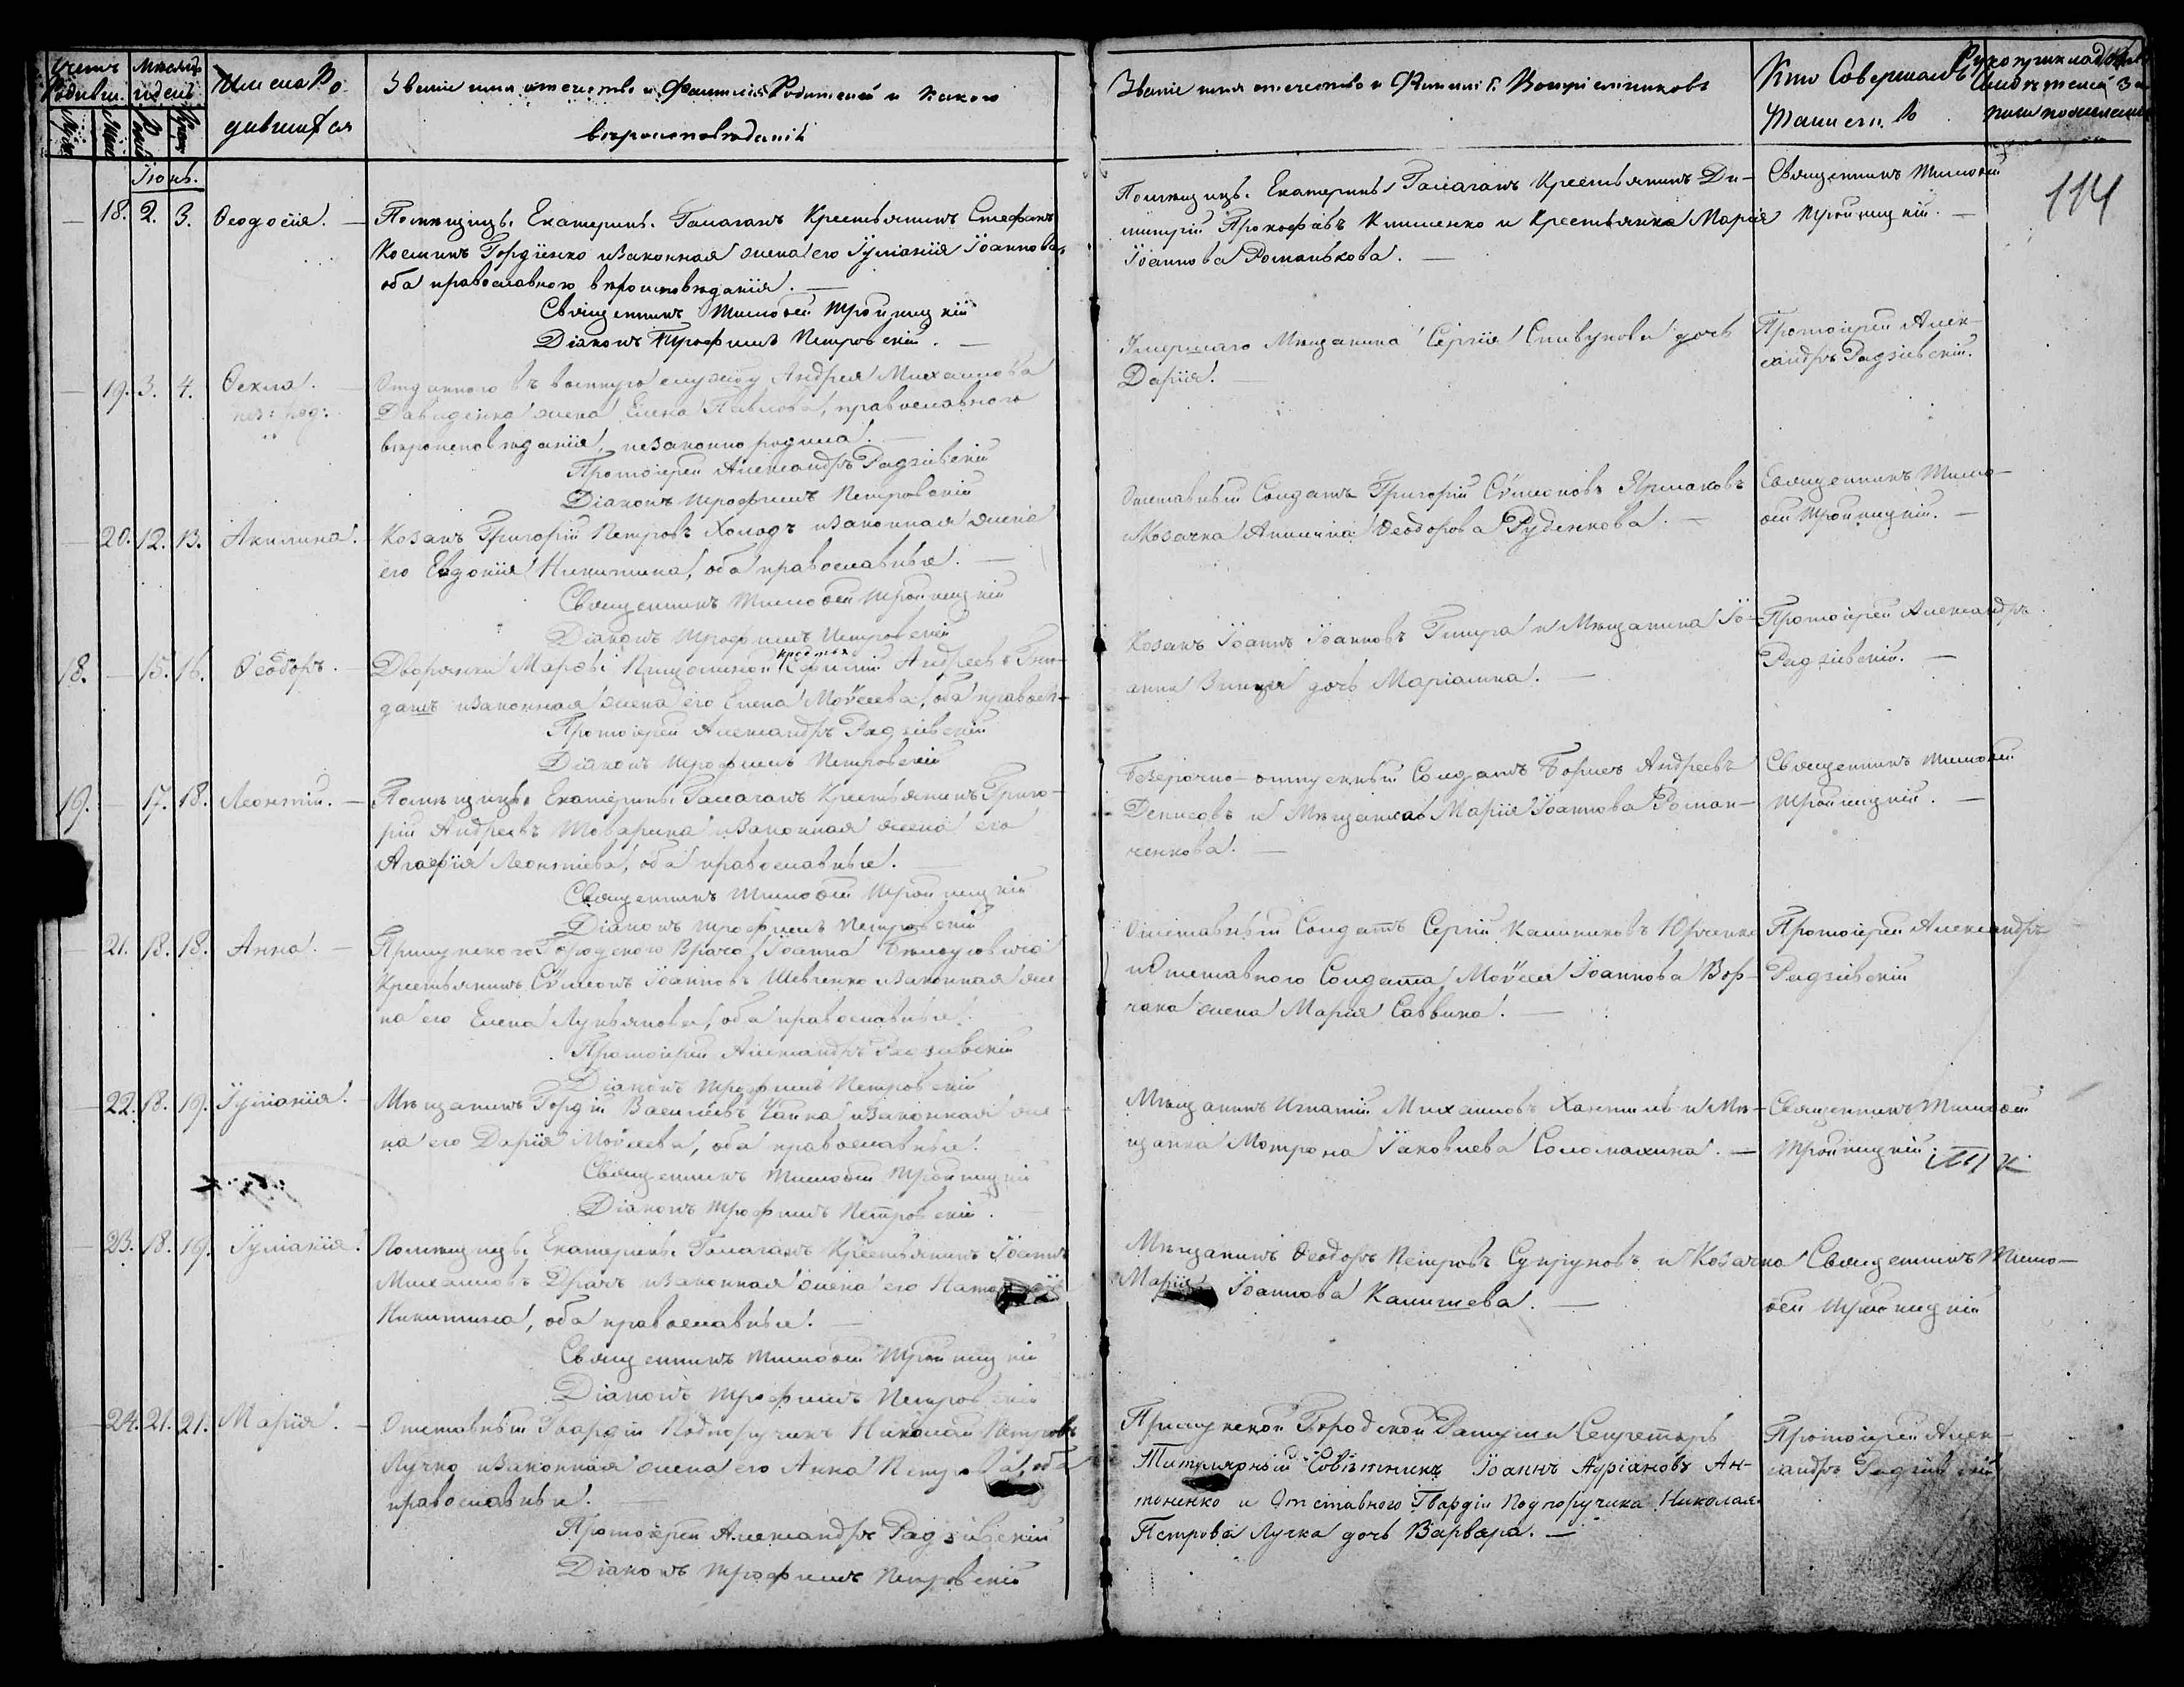 Счетъ Родивш.
Мѣсяцъ и день
Имена Родившихся
Званіе имя отечество и Фамилія Родителей и какого
вѣроисповѣданія
Званіе имя отечество и Фамилія Воспріемниковъ
Кто Совершалъ
Таинство
Рукоприкладство
Свидѣтелей
Іюнь.
114
— 18. 2. 3. Ѳеодосія. —
Помѣщицы Екатерины Галаганъ Крестьянинъ Стефанъ
Косминъ Гордіенко и законная жена его Іуліанія Іоаннова,
оба православного вѣроисповѣданія. —
Священникъ Тимоѳей Тройницкій
Діаконъ Трофимъ Петровскій. —
Помѣщицы Екатерины Галаганъ Крестьянинъ Ди-
митрій Прокофьевъ и Крестьянка Марія
Іоаннова Романькова. —
Священникъ Тимоѳей
Тройницкій. —
— 19. 3. 4. Ѳекла. —
нез: рож:
Отданного въ военную службу Андрея Михаилова
Давиденка жена Елена Павлова, православного
вѣроисповѣданія, незаконно родила. —
Протоіерей Александръ Радзіевскій
Діаконъ Трофимъ Петровскій
Умершаго Мѣщанина Сергія Сливунова дочь
Дарія. —
Протоіерей Алек-
сандръ Радзіевскій.
— 20. 12. 13. Акилина. —
Козакъ Григорій Петровъ Холодъ и законная жена
его Евдокія Никитина, оба православные. —
Священникъ Тимоѳей Тройницкій
Діаконъ Трофимъ Петровскій
Отставный Солдатъ Григорій Сѵмеоновъ Ярмаковъ
и Козачка Акилина Ѳеодорова Руденкова. —
Священникъ Тимо-
ѳей Тройницкій. —
18. — 15. 16. Ѳеодоръ. —
Дворянки Марѳы Андреевъ
и законная жена его Елена Моѵсеева, оба православ-
Протоіерей Александръ Радзіевскій
Діаконъ Трофимъ Петровскій
Козакъ Іоаннъ Іоанновъ и Мѣщанина Іо-
анна дочь Маріамна. —
Протоіерей Александръ
Радзіевскій. —
19. — 17. 18. Леонтій. —
Помѣщицы Екатерины Галаганъ Крестьянинъ Григо-
рій Андреевъ Товарина и законная жена его
Агафія Леонтіева, оба православные. —
Священникъ Тимоѳей Тройницкій
Діаконъ Трофимъ Петровскій
Безсрочно-отпускный Солдатъ Борисъ Андреевъ
Денисовъ и Мѣщанка Марія Іоаннова Роман-
ченкова. —
Священникъ Тимоѳей
Тройницкій. —
— 21. 18. 18. Анна. —
Прилуцкого Городского Врача Іоанна
Крестьянинъ Сѵмеонъ Іоанновъ Шевченко и законная же-
на его Елена Лукьянова, оба православные.
Протоіерей Александръ Радзіевскій
Діаконъ Трофимъ Петровскій
Отставный Солдатъ Сергій Калиниковъ Юрченко
и Отставного Солдата Моѵсея Іоаннова
жена Марія Саввина. —
Протоіерей Александръ
Радзіевскій
— 22. 18. 19. Іуліанія. —
Мѣщанинъ Гордій Васильевъ Чайка и законная же-
на его Дарія Моѵсеева, оба православные.
Священникъ Тимоѳей Тройницкій
Діаконъ Трофимъ Петровскій.
Мѣщанинъ Игнатій Михаиловъ и Мѣ-
щанка Мотрона Іаковлева Соломахина. —
Священникъ Тимоѳей
Тройницкій.
— 23. 18. 19. Іуліанія.
Помѣщицы Екатерины Галаганъ Крестьянинъ Іоаннъ
Михаиловъ Драчъ и законная жена его
Никитина, оба православные. —
Священникъ Тимоѳей Тройницкій
Діаконъ Трофимъ Петровскій
Мѣщанинъ Ѳеодоръ Петровъ Супруновъ и Козачка
Марія Іоаннова Калишева. —
Священникъ Тимо-
ѳей Тройницкій
— 24. 21. 21. Марія. —
Отставный Гвардіи Подпоручикъ Николай Петровъ
Лучко и законная жена его Анна Петрова, оба
православные. —
Протоіерей Александръ Радзіевскій
Діаконъ Трофимъ Петровскій
Прилуцкой Городской Ратуши Секретарь
Титулярный Совѣтникъ Іоаннъ Адріановъ Ан-
тоненко и Отставного Гвардіи Подпоручика Николая
Петрова Лучка дочь Варвара. —
Протоіерей Алек-
сандръ Радзіевскій